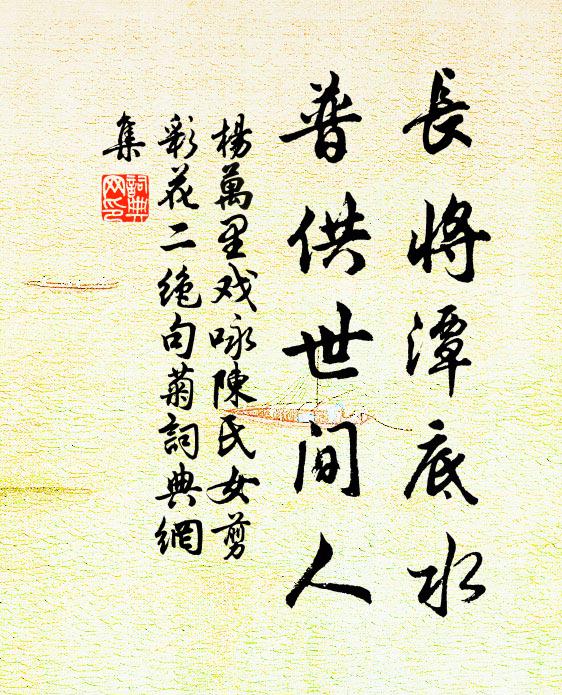 長將潭底水
普供世間人
楊萬里戏咏陳氏女剪
彩花二绝句菊詞典網
集
詞典
网印